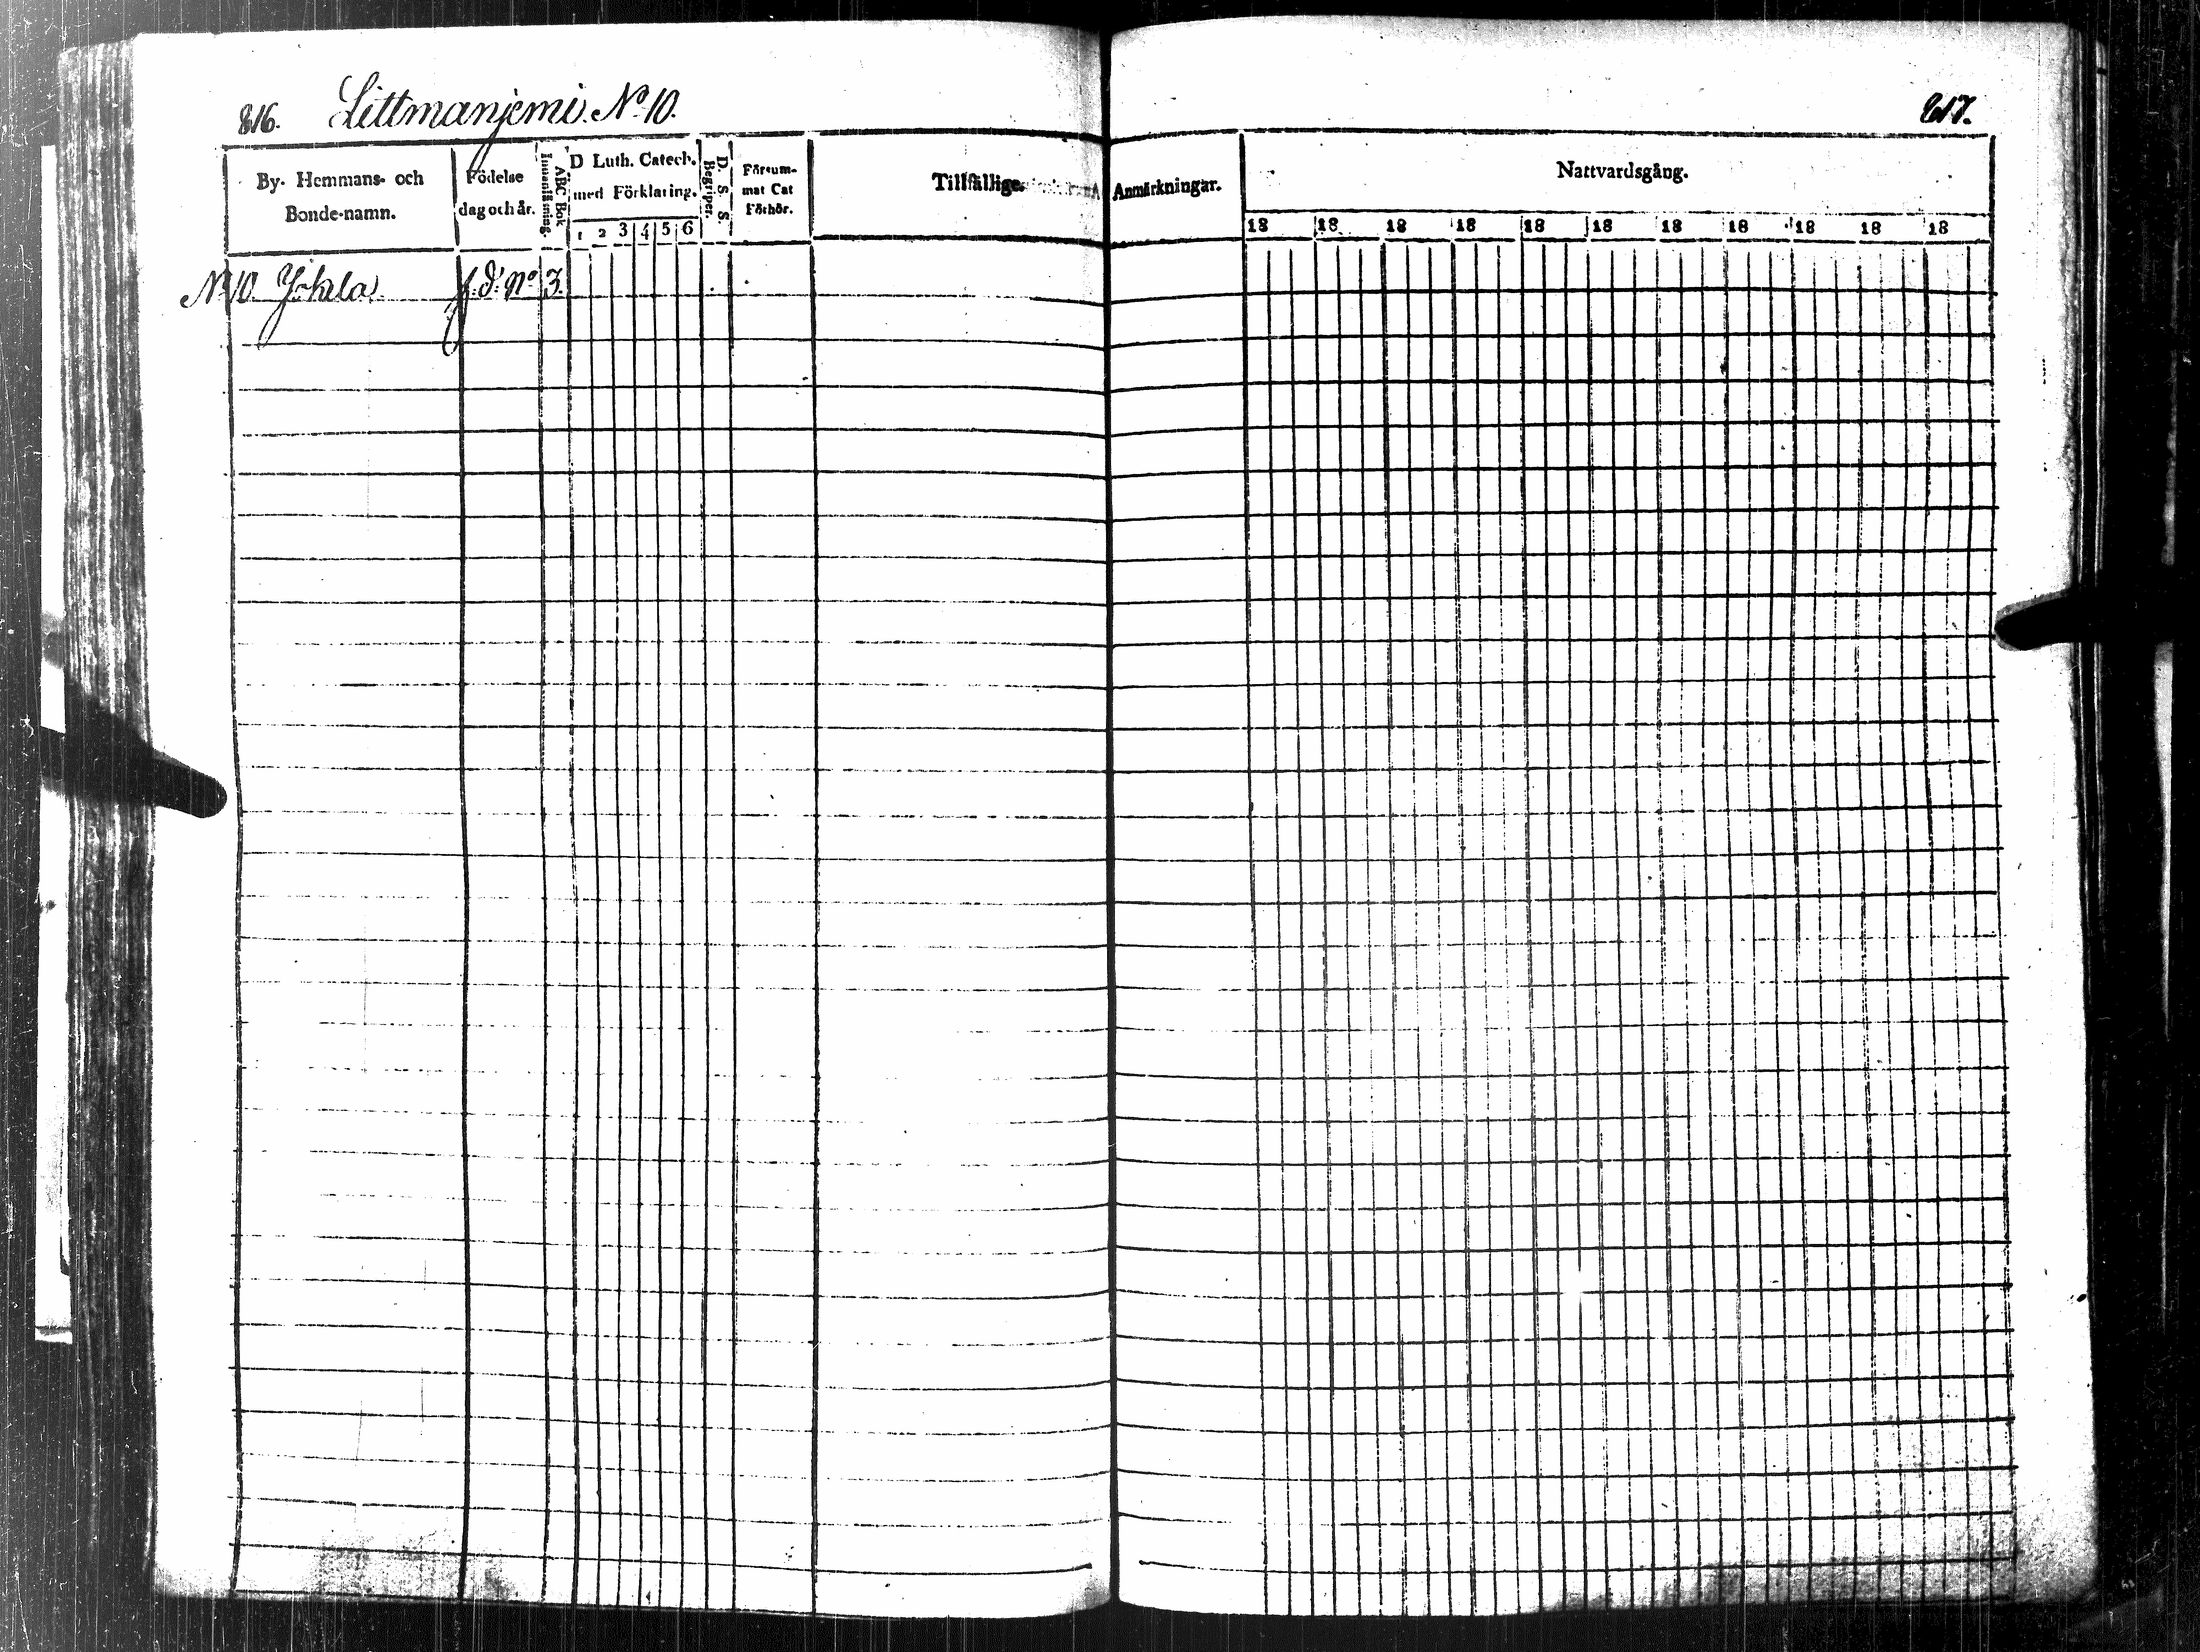 816. Littmanjemi. No 10.
817.
By- Hemmans- och Bonde-namn.
Födelse dag och år.
ABC Bok Innanläsning.
D Luth. Catech. med Förklaring.
1 2 3 4 5 6
D. S. S. Begriper.
Försum- mat Cat Förhör.
Tillfällige Anmärkningar.
Nattvardsgång.
18 18 18 18 18 18 18 18 18 18 18
No 10. Jokela No 3.